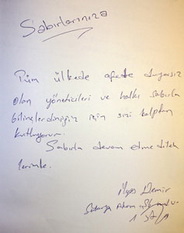 Sabırlarınıza
Tüm ülkede afete duyarsız
olan yöneticileri ve halkı sabırla
bilinçlendirdiğiniz için sizi kalpten
kutluyorum
Sabırla devam etme dilek
lerimle.
İlyas Demir